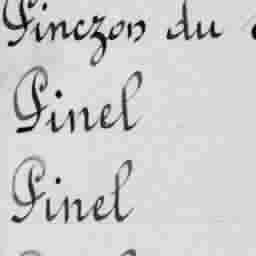 Pinczon du
Pinel
Pinel